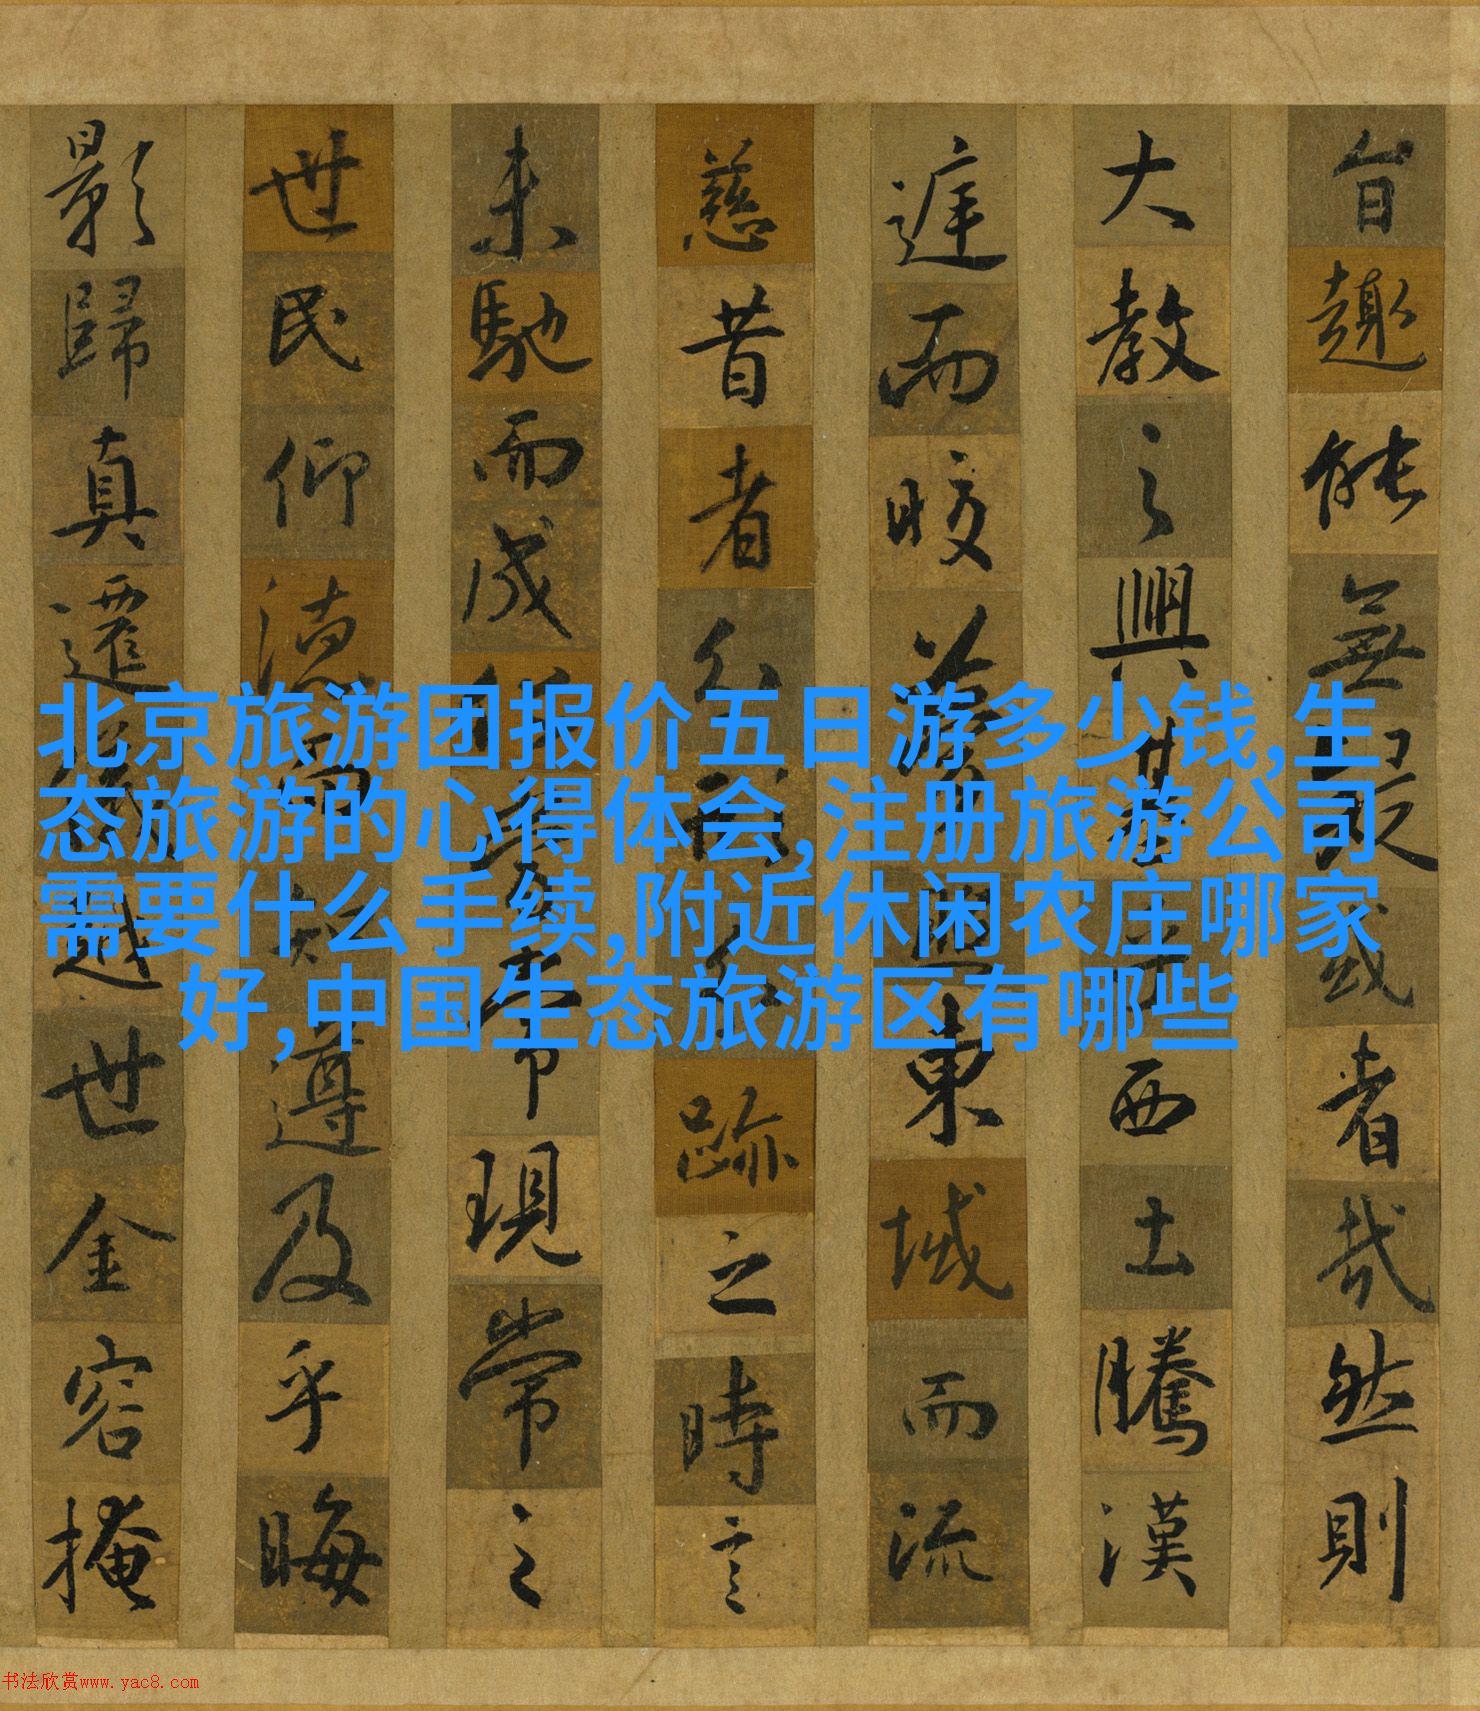 旨趣能無疑惑者哉然則
大教之興基乎西土騰漢
庭而皎夢照東域而流
慈昔者分形分跡之時言
未馳而成俗當常現常之
世民仰德而知遵及乎晦
影歸真遷儀越世金容掩
北京旅游团报价五日游多少钱,生
态旅游的心得体会,注册旅游公司
需要什么手续,附近休闲农庄哪家
好,中国生态旅游区有哪些
书法欣赏www.yac8.com